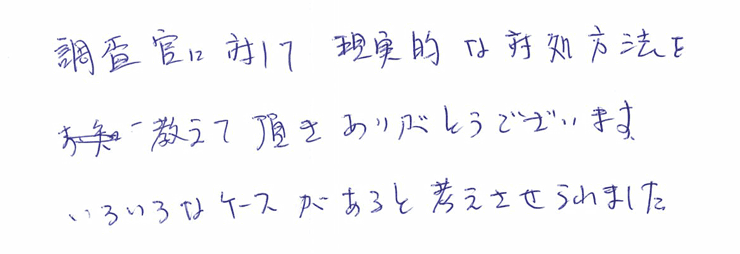 調査官に対して 現実的な対処方法を
教えて頂きありがとうございます
いろいろなケースがあると考えさせられました